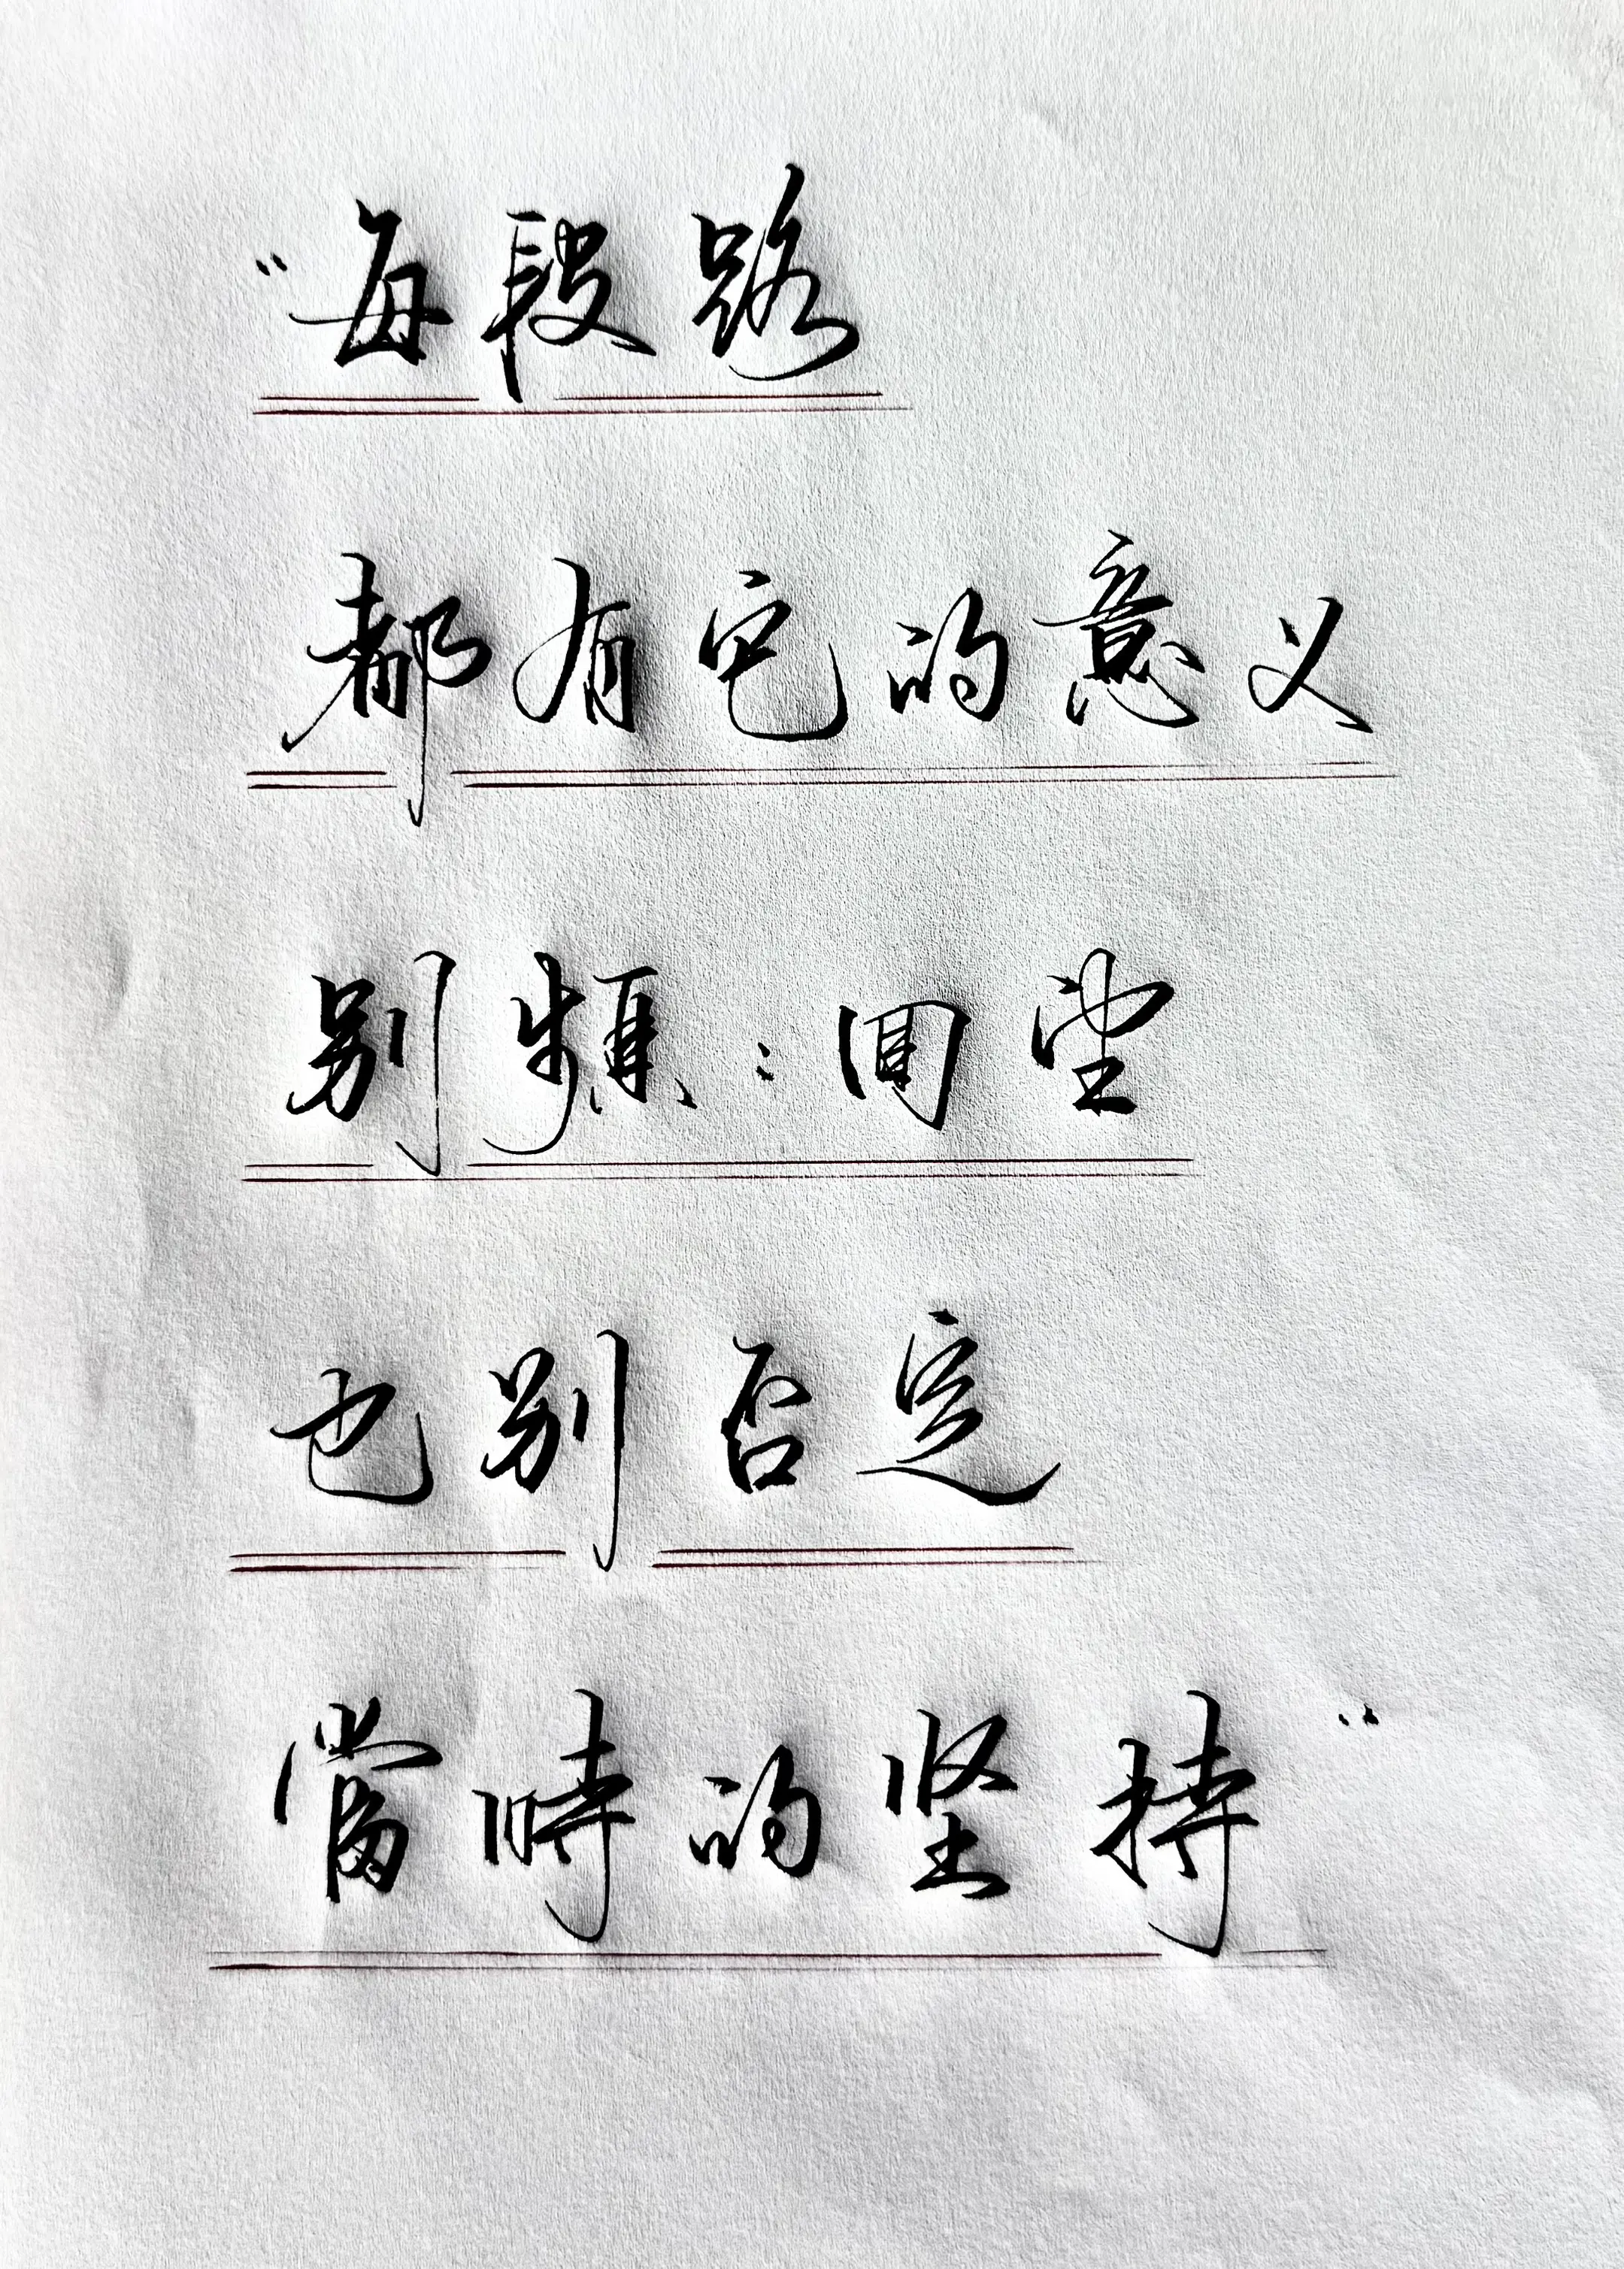 “每段路
都有它的意义
别频：回望
也别否定
當時的坚持”